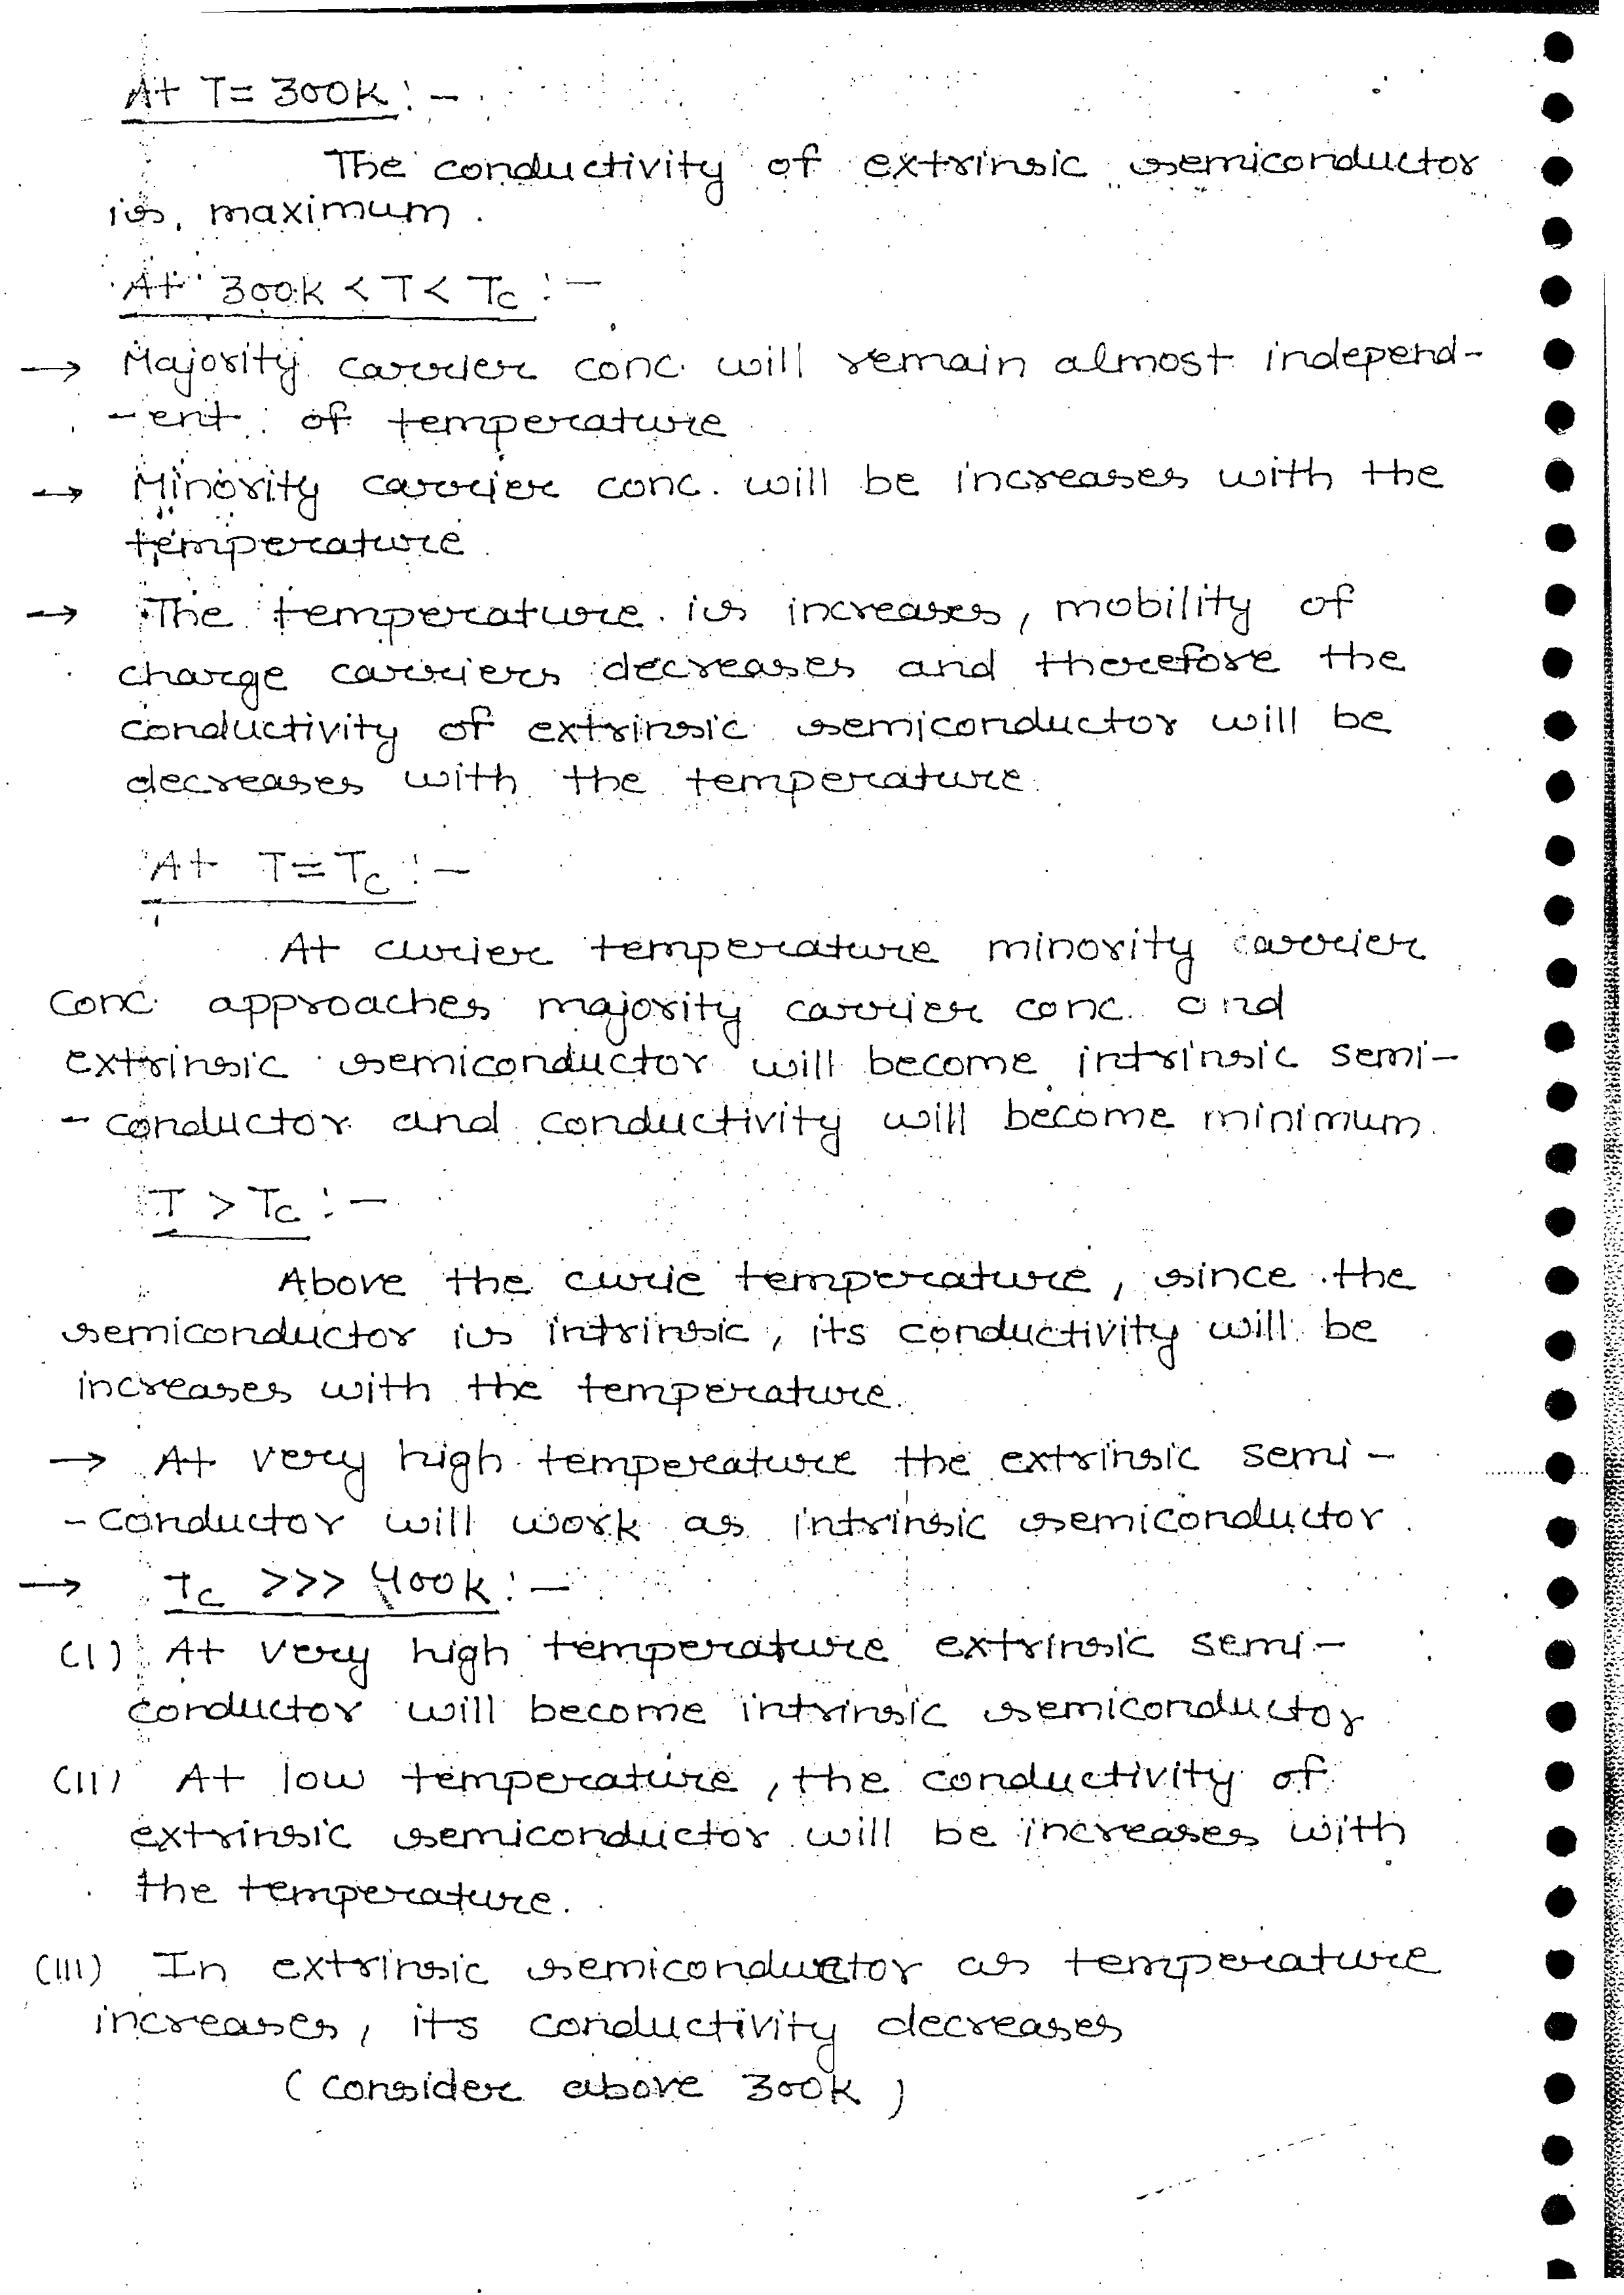 At T = 300K :-
The conductivity of extrinsic semiconductor
is maximum.
At 300K < T < Tc :-
→ Majority carrier conc. will remain almost independ-
-ent of temperature
→ Minority carrier conc. will be increases with the
temperature.
→ The temperature is increases, mobility of
charge carriers decreases and therefore the
conductivity of extrinsic semiconductor will be
decreases with the temperature.
At T = Tc :-
At curier temperature minority carrier
conc. approaches majority carrier conc. and
extrinsic semiconductor will become intrinsic semi-
-conductor and conductivity will become minimum.
T > Tc :-
Above the curie temperature, since the
semiconductor is intrinsic, its conductivity will be
increases with the temperature.
→ At very high temperature the extrinsic semi-
-conductor will work as intrinsic semiconductor.
→ Tc >>> 400K :-
(I) At very high temperature extrinsic semi-
conductor will become intrinsic semiconductor
(II) At low temperature, the conductivity of
extrinsic semiconductor will be increases with
the temperature.
(III) In extrinsic semiconductor as temperature
increases, its conductivity decreases
(consider above 300K)